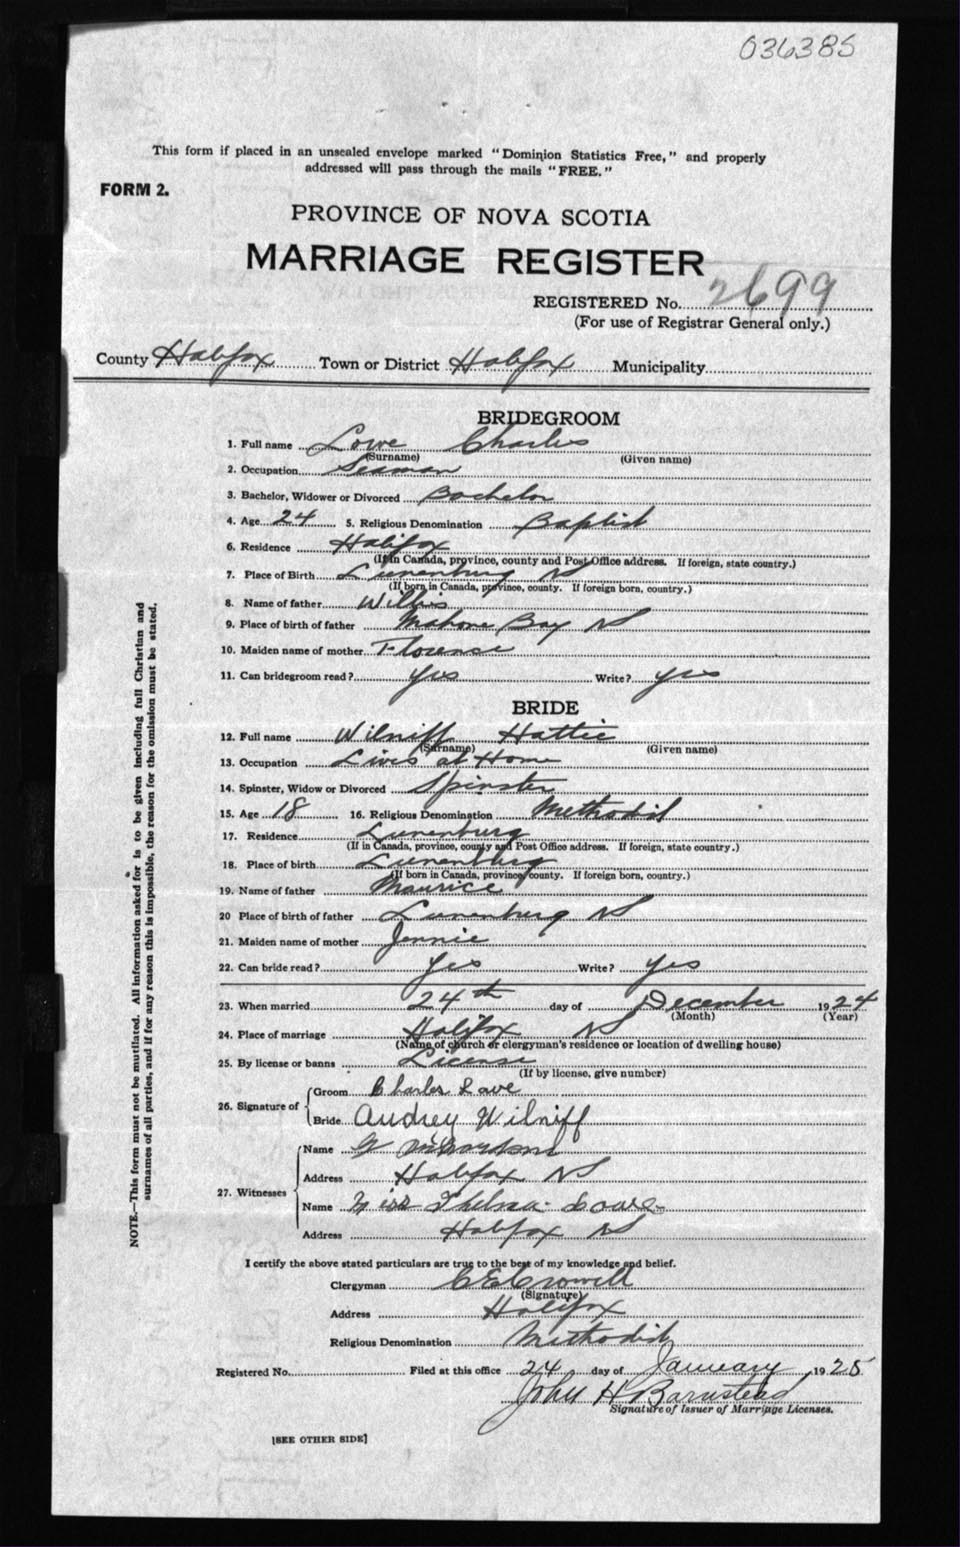 036385
This form if placed in an unsealed envelope marked "Dominion Statistics Free," and properly
addressed will pass through the mails "FREE."
FORM 2.
PROVINCE OF NOVA SCOTIA
MARRIAGE REGISTER
REGISTERED No. 2699
(For use of Registrar General only.)
County Halifax Town or District Halifax Municipality
BRIDEGROOM
1. Full name Lowe Charles
(Surname) (Given name)
2. Occupation Seaman
3. Bachelor, Widower or Divorced Bachelor
4. Age 24 5. Religious Denomination Baptist
6. Residence Halifax
(If in Canada, province, county and Post Office address. If foreign, state country.)
7. Place of Birth Lunenburg NS
(If born in Canada, province, county. If foreign born, country.)
8. Name of father Willis
9. Place of birth of father Mahone Bay NS
10. Maiden name of mother Florence
11. Can bridegroom read? Yes Write? yes
BRIDE
12. Full name Wilniff Hattie
(Surname) (Given name)
13. Occupation Lives at Home
14. Spinster, Widow or Divorced Spinster
15. Age 18 16. Religious Denomination Methodist
17. Residence Lunenburg
(If in Canada, province, county and Post Office address. If foreign, state country.)
18. Place of birth Lunenburg
(If born in Canada, province, county. If foreign born, country.)
19. Name of father Maurice
20 Place of birth of father Lunenburg NS
21. Maiden name of mother Jennie
22. Can bride read? Yes Write? yes
23. When married 24th day of December 1924
(Month) (Year)
24. Place of marriage Halifax NS
(Name of church or clergyman's residence or location of dwelling house)
25. By license or banns License
(If by license, give number)
26. Signature of
Groom Charles Lowe
Bride Audrey Wilniff
27. Witnesses
Name G
Address Halifax NS
Name Miss Thelma Lowe
Address Halifax NS
I certify the above stated particulars are true to the best of my knowledge and belief.
Clergyman C E Crowell
(Signature)
Address Halifax
Religious Denomination Methodist
Registered No. Filed at this office 24 day of January 1925
John H Barnstead
Signature of Issuer of Marriage Licenses.
[SEE OTHER SIDE]
NOTE.—This form must not be mutilated. All information asked for is to be given including full Christian and
surnames of all parties, and if for any reason this is impossible, the reason for the omission must be stated.